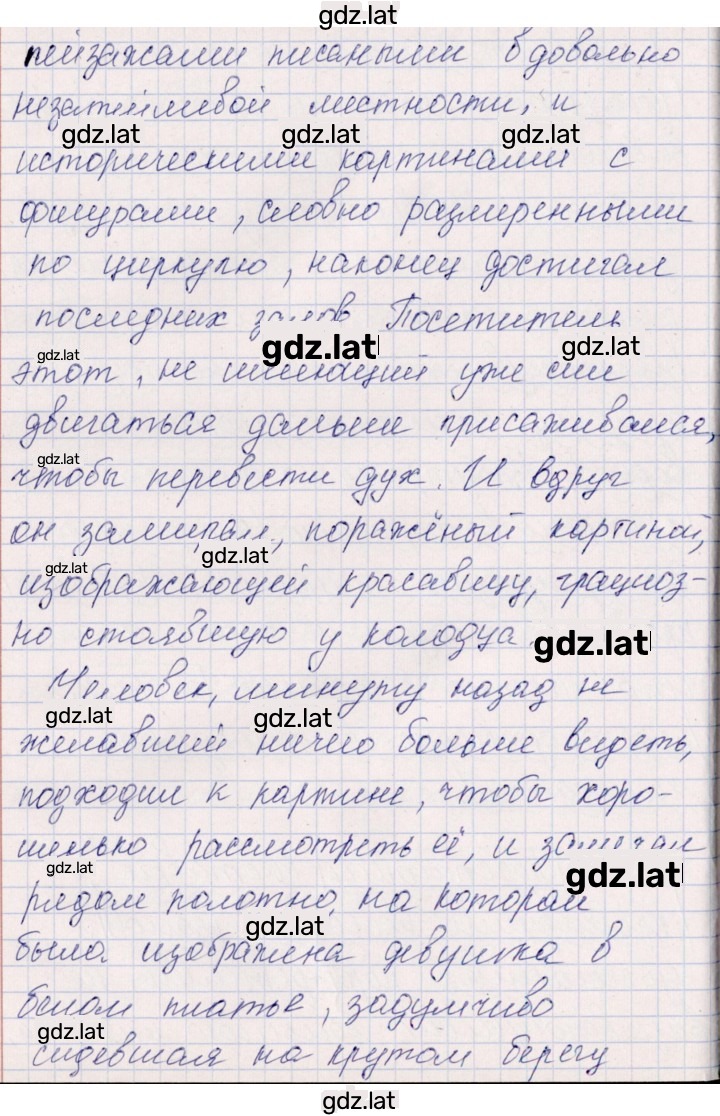 gdz.lat
пейзажами писаными в довольно
незатейливой местности, и
gdz.lat gdz.lat gdz.lat
историческими картинами с
фигурами, словно размеренными
по циркулю, наконец достигал
последних залов Посетитель
gdz.lat gdz.lat gdz.lat
этот, не имеющий уже сил
двигаться дальше присаживался,
gdz.lat
чтобы перевести дух. И вдруг
он замирал, поражёный картиной,
gdz.lat gdz.lat
изображающей красавицу, грациоз-
но стоявшую у колодца
gdz.lat
Человек, минуту назад не
gdz.lat gdz.lat
желавший ничего больше видеть,
подходил к картине, чтобы хоро-
шенько рассмотреть её, и замечал
gdz.lat gdz.lat
рядом полотно, на котором
gdz.lat
была изображена девушка в
белом платье, задумчиво
gdz.lat
сидевшая на крутом берегу
gdz.lat